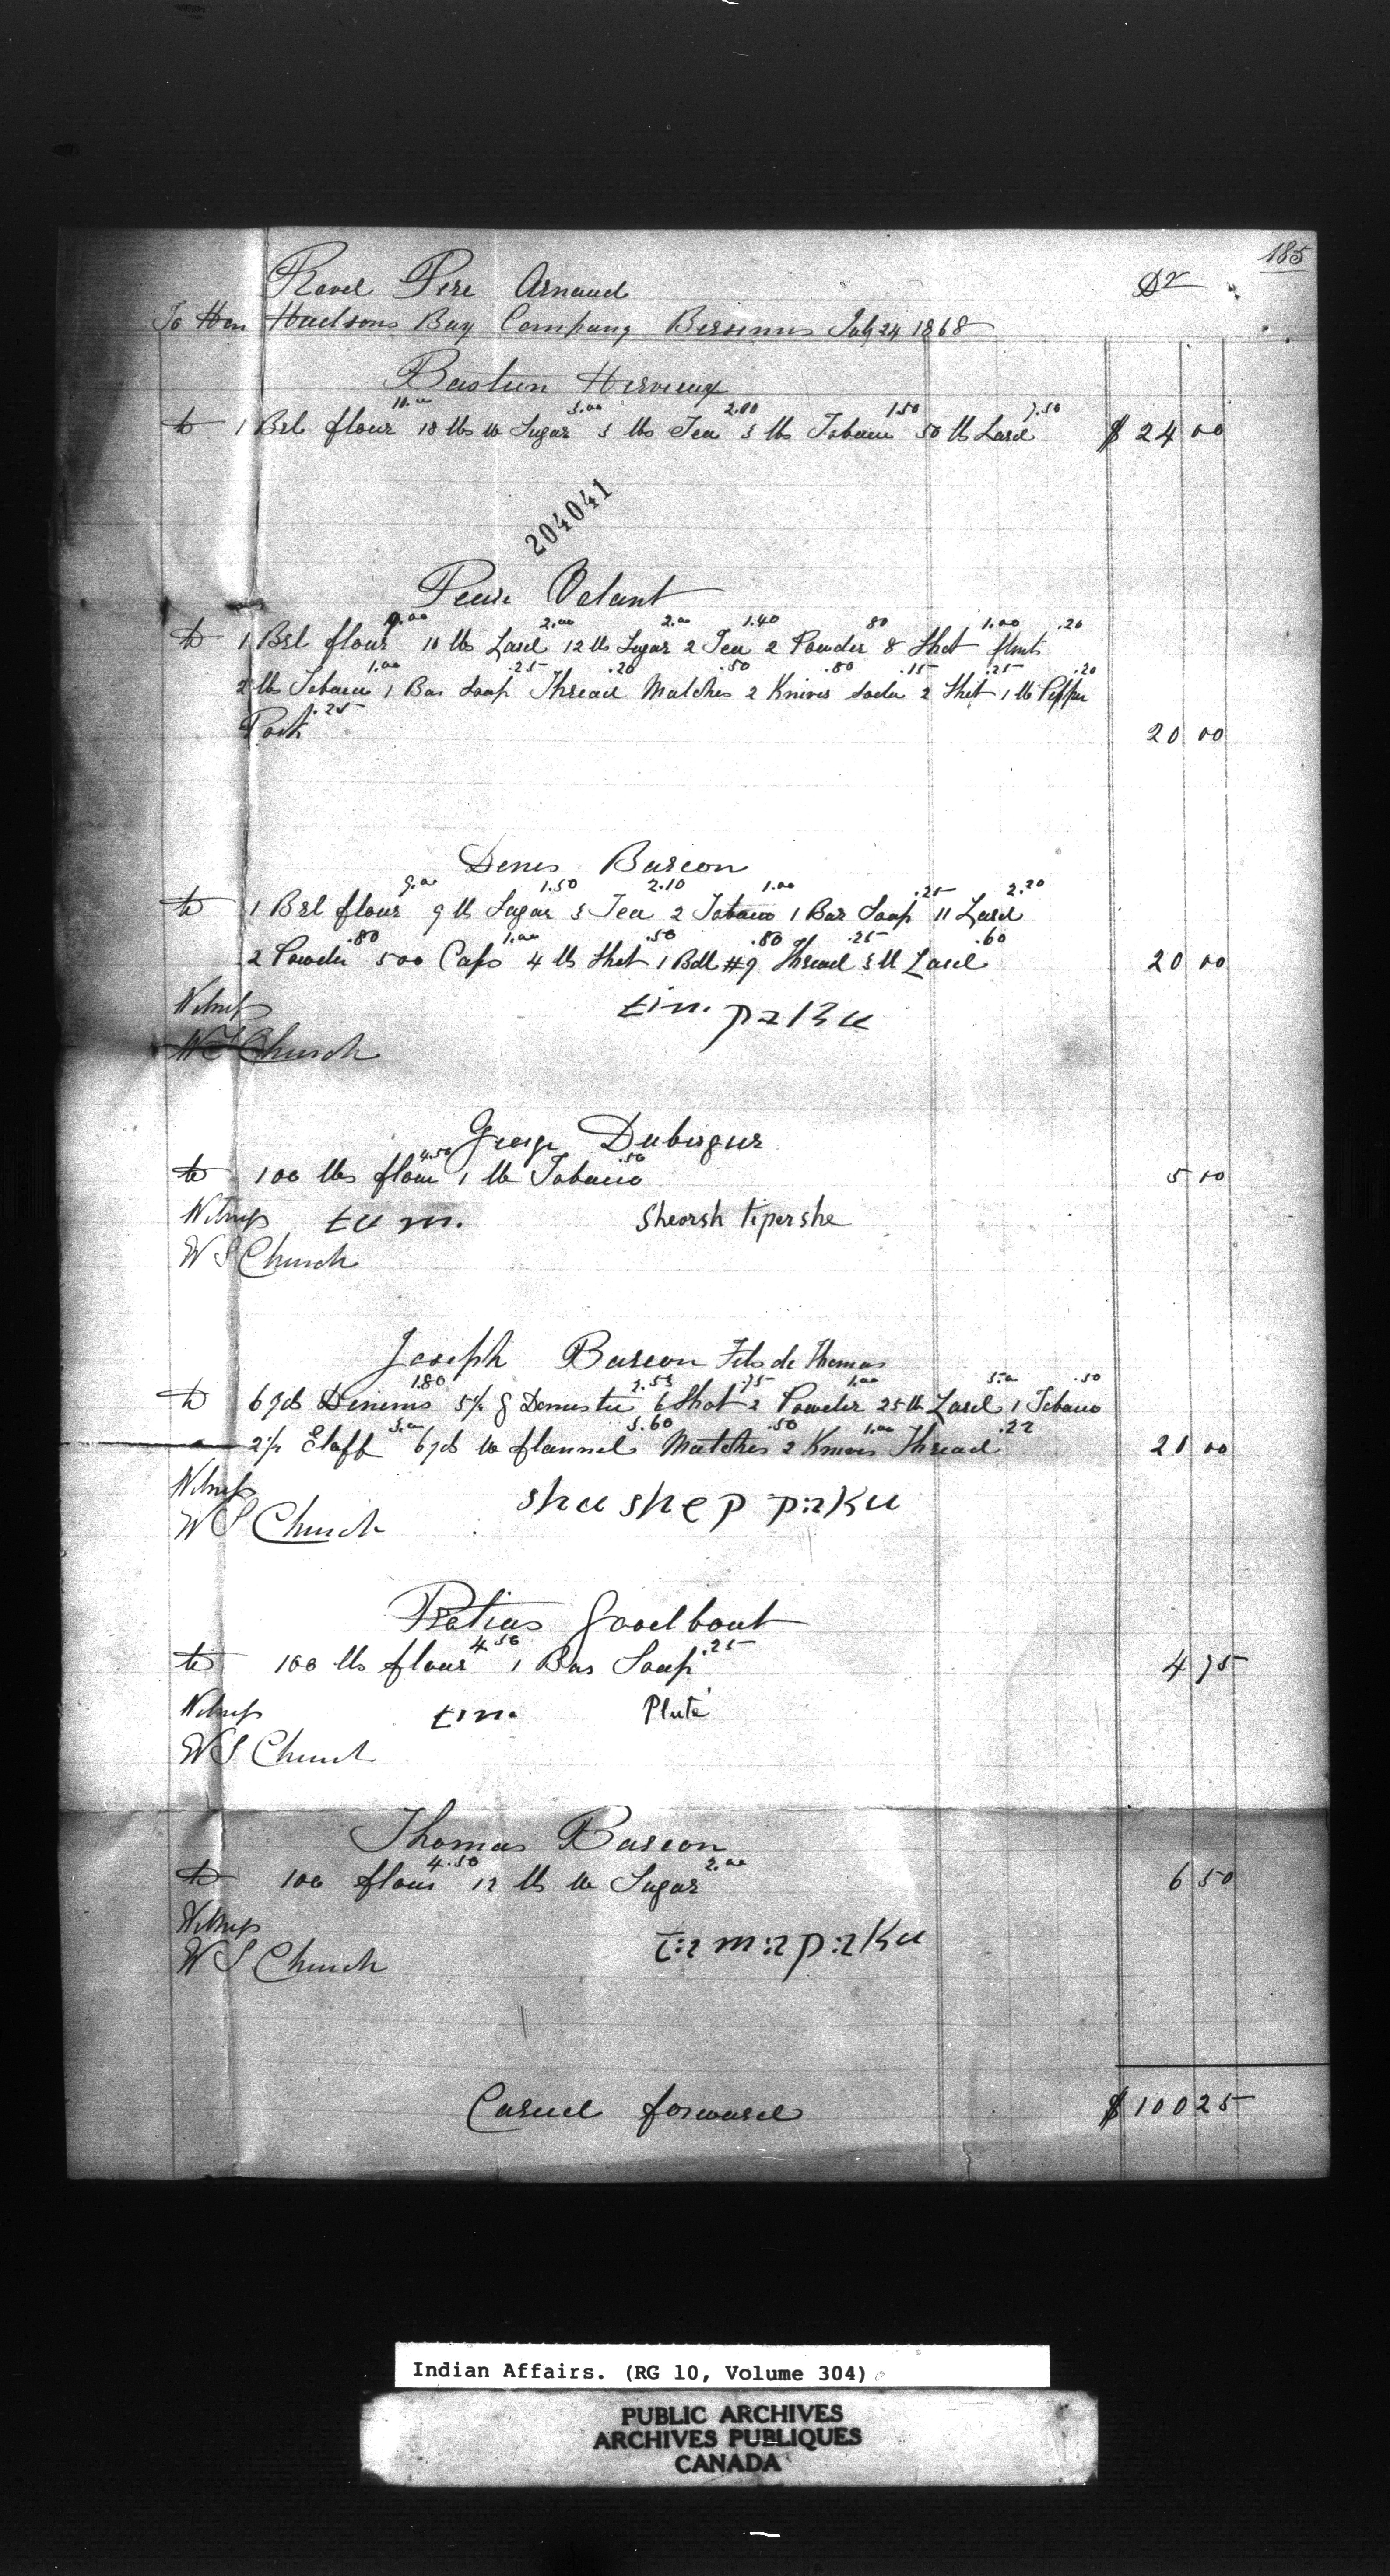 185
Revd Pere Arnaud Dr
To Hon Hudsons Bay Company Bersimis July 24 1868
Bastien Hervieux
10.00 3.00 2.00 1.50 7.50
to 1 Brl flour 18 lbs w Sugar 3 lbs Tea 3 lbs Tobacco 50 lb Lard $ 24 00
204041
Pierre Volant
9.00 2.00 2.00 1.40 80 1.00 .20
to 1 Brl flour 10 lbs Lard 12 lb Sugar 2 Tea 2 Powder 8 Shot flints
1.00 .25 .20 .50 .80 .15 .25 .20
2 lbs Tobacco 1 Bar Soap Thread Matches 2 Knives Soda 2 Shot 1 lb Pepper
.25
20 00
Denis Bacon
9.00 1.50 2.10 1.00 .25 2.20
to 1 Brl flour 9 lb Sugar 3 Tea 2 Tobacco 1 Bar Soap 11 Lard
.80 1.00 .50 .80 .25 .60
2 Powder 500 Caps 4 lb Shot 1 Bdl #9 Thread 3 lb Lard 20 00
Witness tin. pa Ku
W S Church
George Dubergur
4.50 .50
to 100 lbs flour 1 lb Tobacco 5 00
Witness tum. Sheorsh tipershe
W S Church
Joseph Bacon Fils de Thomas
1.80 2.53 .75 1.00 5.00 .50
to 6 yds Denims 5½ y Domestic 6 Shot 2 Powder 25 lb Lard 1 Tobacco
3.00 3.60 .50 1.00 .22
2½ Etoff 6 yds w flannel Matches 2 Knives Thread 21 00
Witness shu shep p:aKu
W S Church
Goodbout
4.50 .25
to 100 lbs flour 1 Bar Soap 4 75
Witness tim. Pluté
W S Church
Thomas Bacon
4.50 2.00
to 100 flour 12 lb w Sugar 6 50
Witness t:a m:a p:aKu
W S Church
Carried forward $ 100 25
Indian Affairs. (RG 10, Volume 304)
PUBLIC ARCHIVES
ARCHIVES PUBLIQUES
CANADA